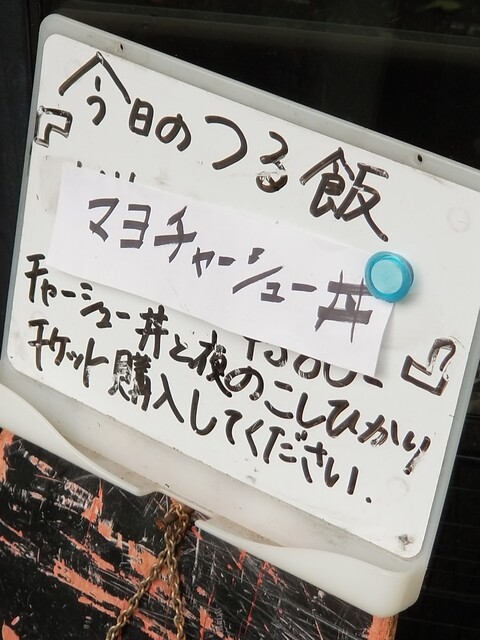 今日のつる飯
『
マヨチャーシュー丼
』
チャーシュー丼と夜のこしひかり
チケット購入してください.